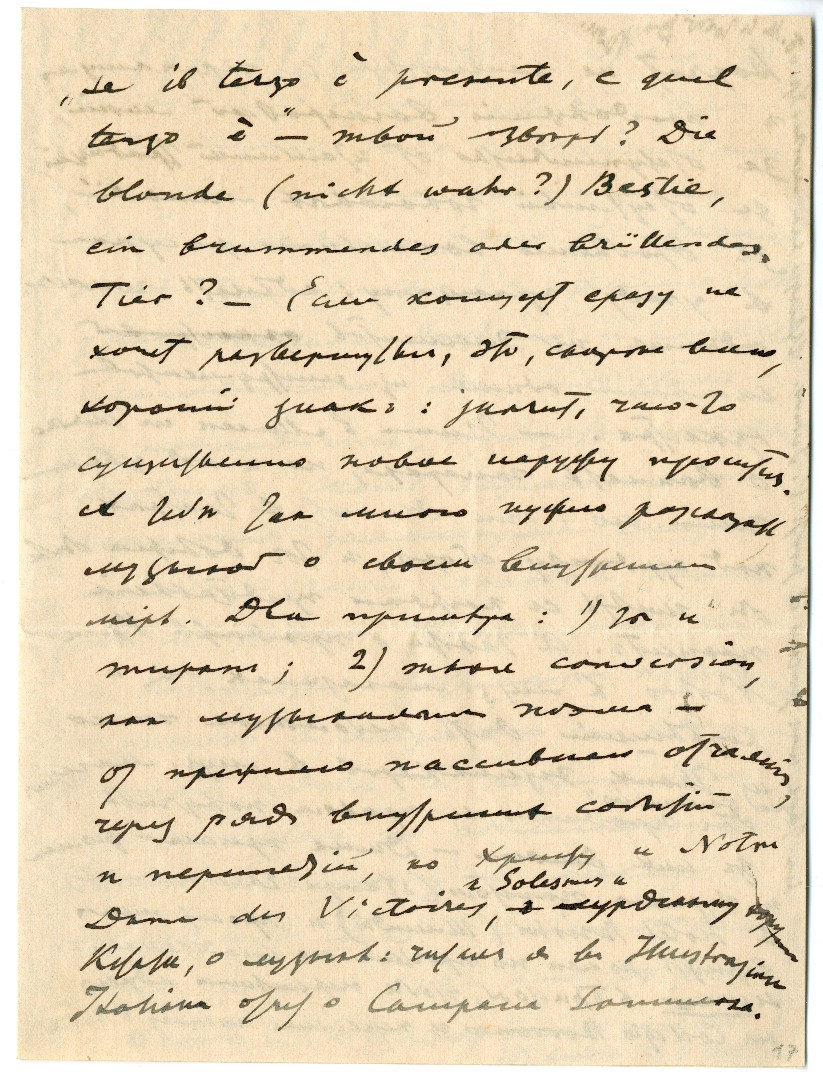 „Se il terzo è presente, e quel
terzo è“ — твой зверь? Die
blonde (nicht wahr?) Bestie,
ein brummendes oder brüllendes
Tier? — Если концерт сразу не
хочет развернуться, это, скорее всего,
хороший знакъ: значит, что-то
существенно новое наружу просится.
А тебе так много нужно рассказать
музыкой о своем внутреннем
мірѣ. Для примѣра: 1) ты и
тираны; 2) твоя conversion,
как музыкальная поэма —
от прежнего пассивного отчаяния,
через рядъ внутренних событий
и перипетій, ко Христу и Notre
Dame des Victoires, и Solesmes и
Кстати, о музыкѣ: читал я в Illustrazione
Italiana о Campana Sommersa.
17